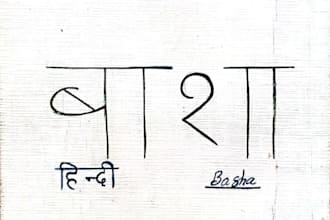 बाशा
हिन्दी Basha